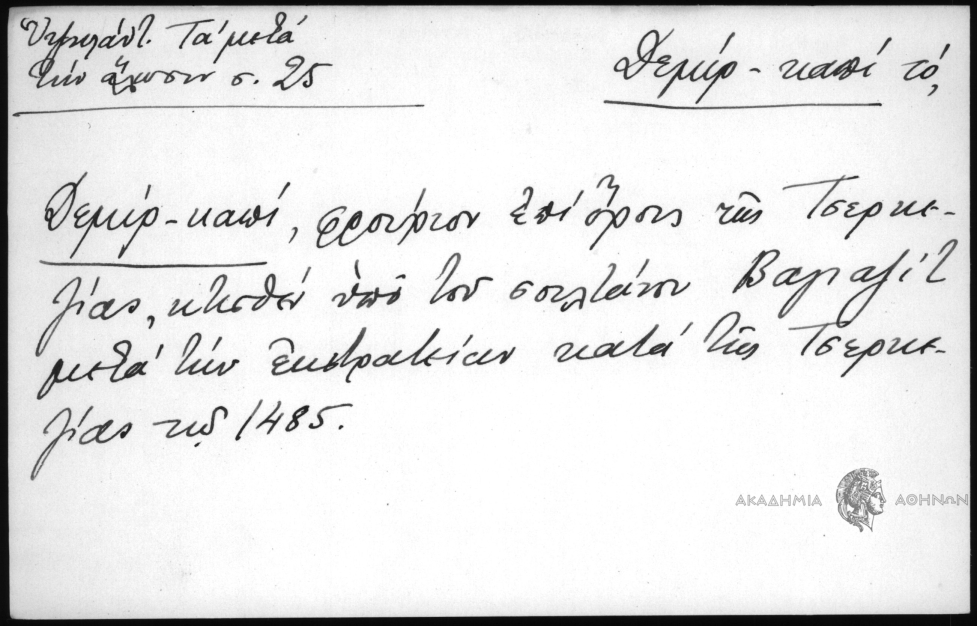 Ὑψηλάντ. Τά μετά
τήν ἅλωσιν σ. 25
Δεμίρ-καπί τό,
Δεμίρ-καπί, φρούριον ἐπί ὄρους τῆς Τσερκε-
ζίας, κτισθέν ὑπό τοῦ σουλτάνου Βαγιαζίτ
μετά τήν ἐκστρατείαν κατά τῆς Τσερκε-
ζίας τῷ 1485.
ΑΚΑΔΗΜΙΑ ΑΘΗΝΩΝ